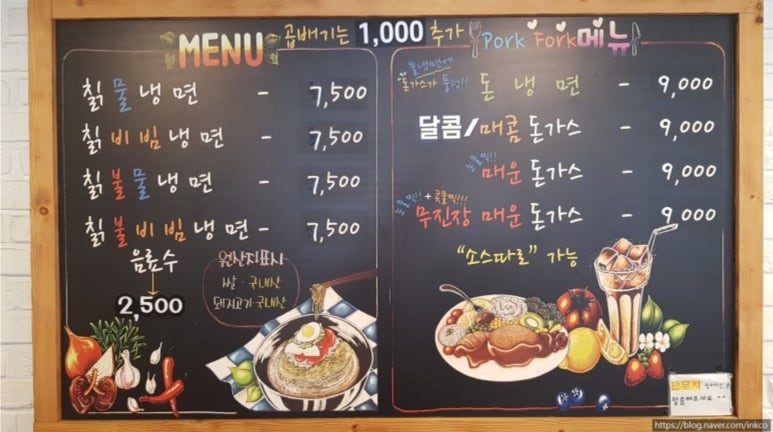 MENU
곱배기는 1,000 추가
칡 물 냉 면 - 7,500
칡 비 빔 냉 면 - 7,500
칡 불 물 냉 면 - 7,500
칡 불 비 빔 냉 면 - 7,500
음료수
2,500
원산지표시
쌀 - 국내산
돼지고기-국내산
Pork Fork메뉴
물냉면에
돈가스가 퐁당!!
돈 냉 면 - 9,000
달콤/매콤 돈가스 - 9,000
매운 돈가스 - 9,000
무진장 매운 돈가스 - 9,000
"소스따로" 가능
단무지
말씀해주세요 ^^
https://blog.naver.com/inkco